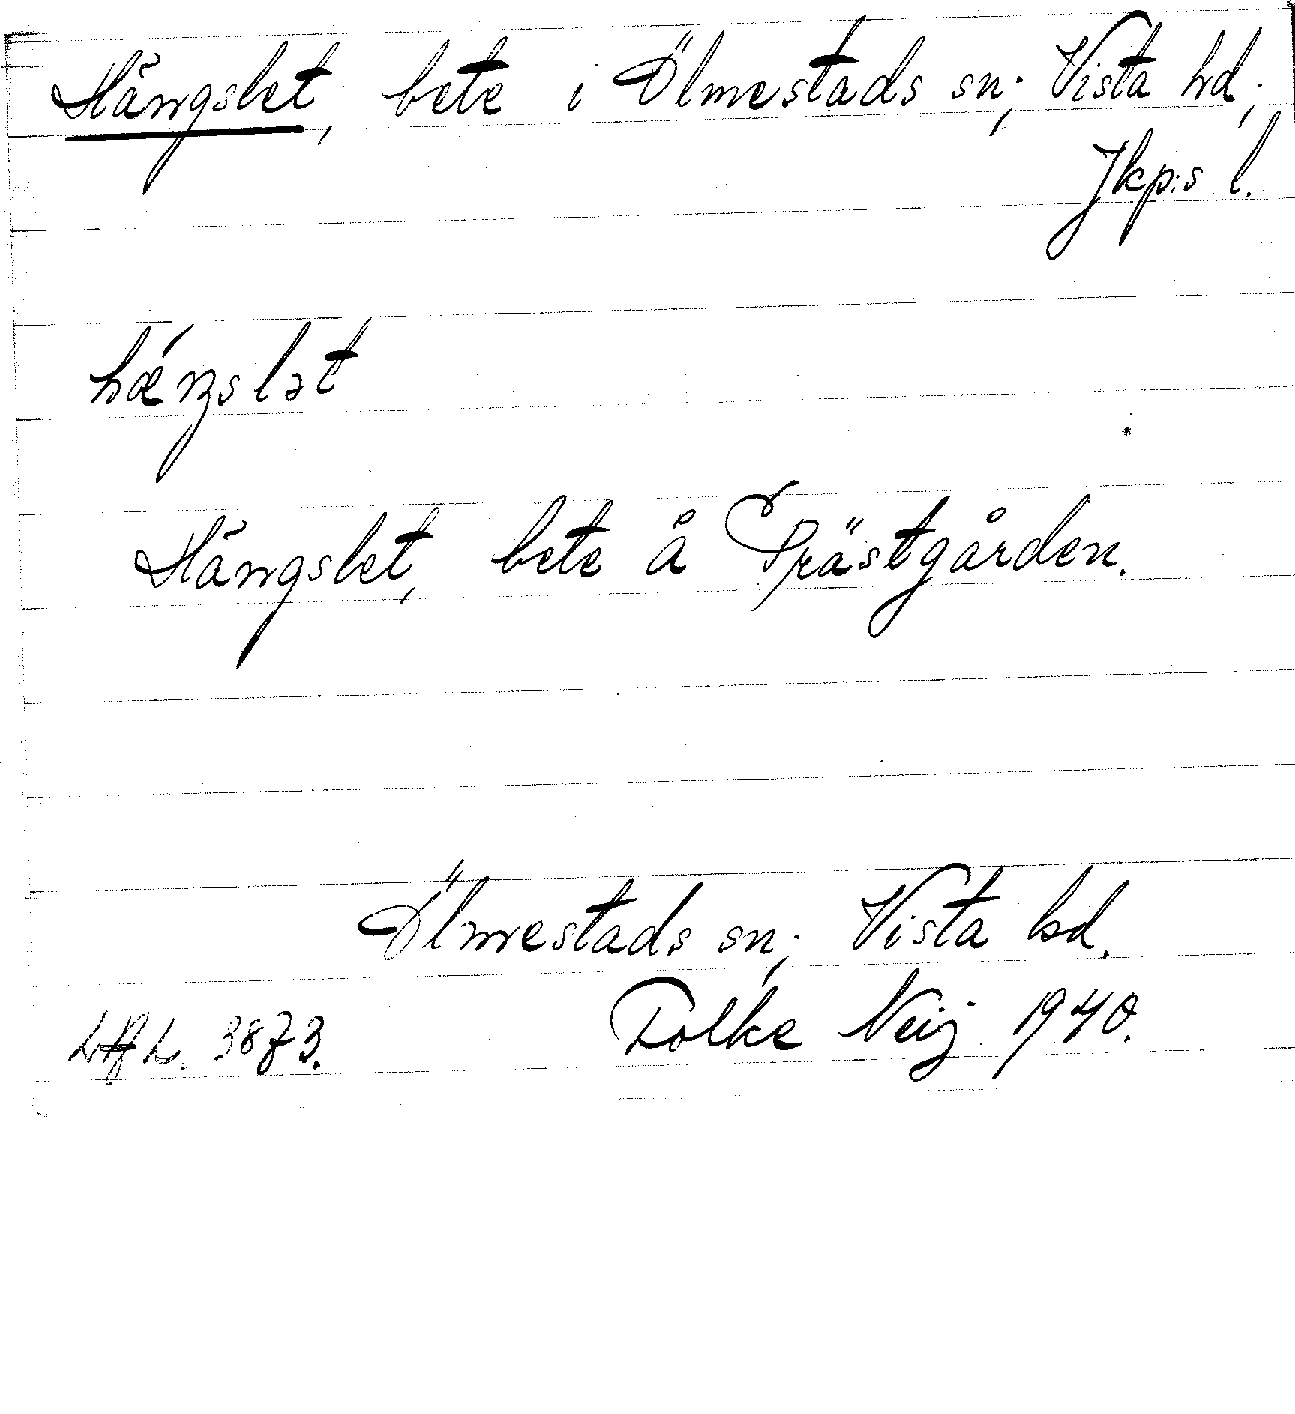 Hängslet, bete i Ölmestads sn; Vista hd;
Jkp:s l.
hǽŋslət
Hängslet, bete å Prästgården.
Ölmestads sn; Vista hd.
3873. Folke Neij 1940.